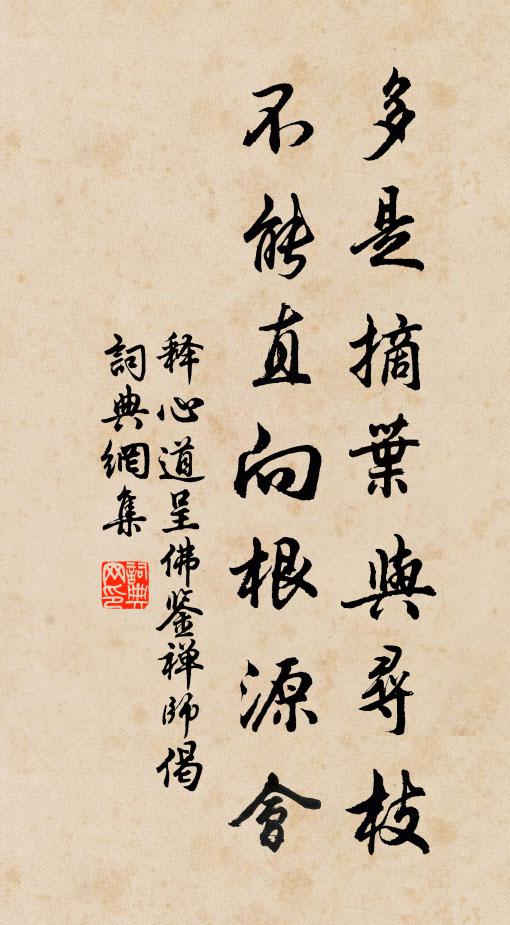 多是摘葉與尋枝
不能直向根源會
释心道呈佛鉴禅師偈
詞典網集
詞典网印